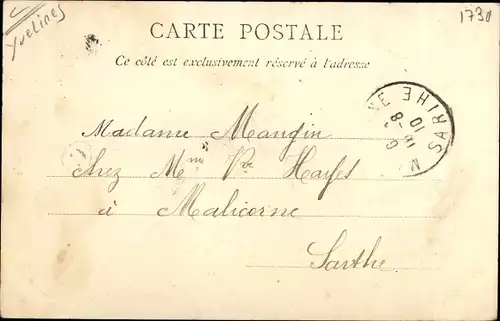 Yvelines
1730
CARTE POSTALE
Ce côté est exclusivement réservé à l'adresse
Madame Mangin
chez Mme Vve Hayes
à Malicorne
Sarthe